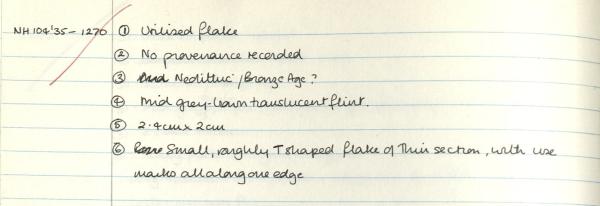 NH 104'35-1270 ① Utilised flake
② No provenance recorded
③ Neolithic / Bronze Age?
④ Mid grey-brown translucent flint.
⑤ 2.4cm x 2cm
⑥ Small, roughly T shaped flake of thin section, with use
marks all along one edge